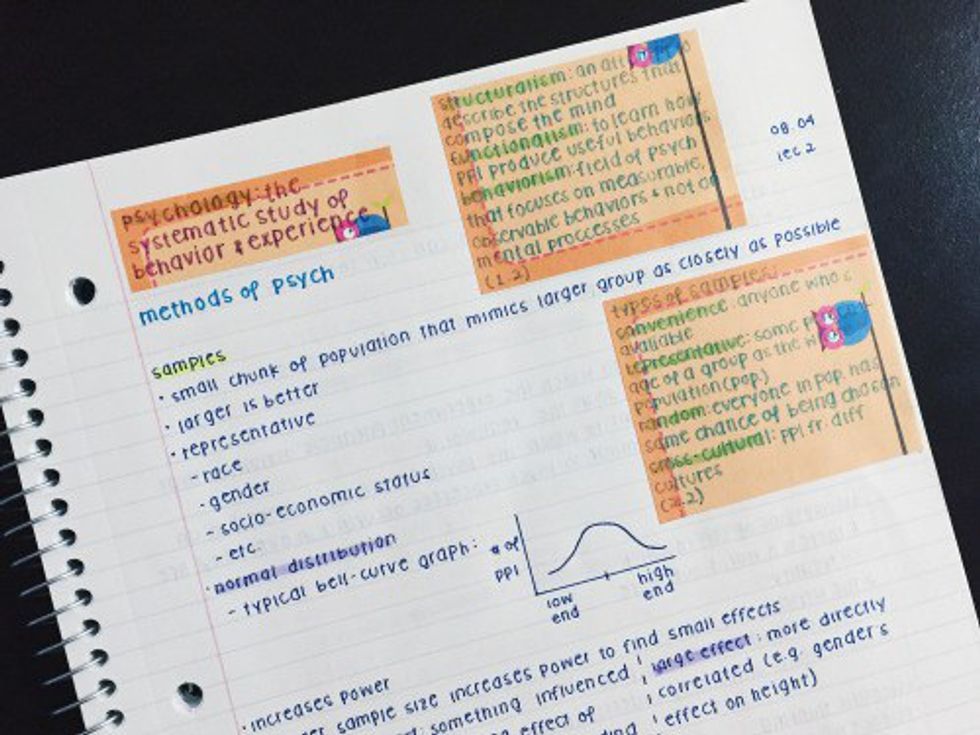 psychology: the
systematic study of
behavior & experience
structuralism: an
describe the structures that
compose the mind
functionalism: to learn how
ppl produce useful behaviors
behaviorism: field of psych
that focuses on measurable,
observable behaviors & not on
mental proccesses
(1.2)
08.04
lec 2
methods of psych
samples
• small chunk of population that mimics larger group as closely as possible
• larger is better
• representative
- race
- gender
- socio-economic status
- etc.
• normal distribution
- typical bell-curve graph:
# of
ppl
low
end
high
end
types of samples:
convenience: anyone who's
available
representative: some
age of a group as the
population (pop.)
random: everyone in pop. has
same chance of being chosen
cross-cultural: ppl fr. diff
cultures
(2.2)
• increases power
sample size increases power to find small effects
something influenced
effect of
large effect: more directly
correlated (e.g. gender's
effect on height)